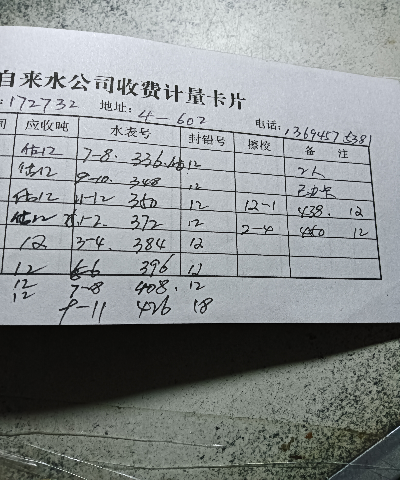 自来水公司收费计量卡片
:172732 地址: 4-602 电话: 13694575381
间 应收吨 水表号 封铅号 擦校 备 注
估12 7-8. 336 12 2人
估12 9-10. 348 12
估12 11-12 360 12 12-1 438. 12
估12 1-2. 372 12 2-4 450 12
12 3-4. 384 12
12 5-6 396 12
12 7-8 408. 12
12 9-11 426 18